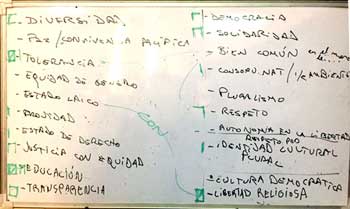 - DIVERSIDAD
- PAZ / CONVIVENCIA PACÍFICA
- TOLERANCIA
- EQUIDAD DE GÉNERO
- ESTADO LAICO
- EQUIDAD
- ESTADO DE DERECHO
- JUSTICIA CON EQUIDAD
- EDUCACIÓN
- TRANSPARENCIA
CON
- DEMOCRACIA
- SOLIDARIDAD
- BIEN COMÚN en el
- CONSERV. NAT /
- PLURALISMO
- RESPETO
- AUTONOMÍA EN LA LIBERTAD
RESPETO POR
- IDENTIDAD CULTURAL
PLURAL
- CULTURA DEMOCRATICA
- LIBERTAD RELIGIOSA